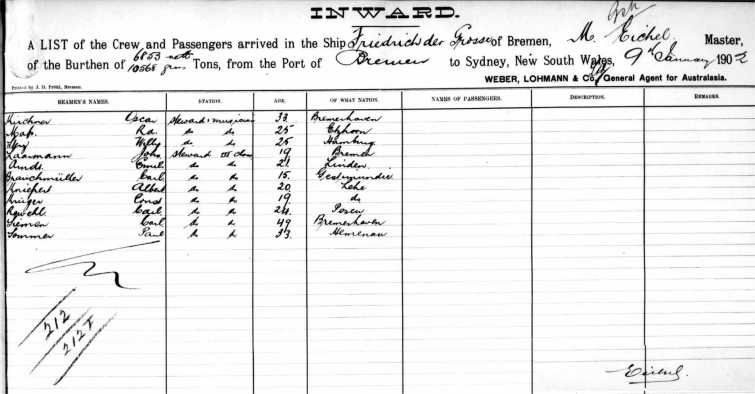 INWARD.
A LIST of the Crew and Passengers arrived in the Ship Friedrich der Grosse of Bremen, M. Eichel. Master,
of the Burthen of 6853 nett 10568 gross Tons, from the Port of Bremen to Sydney, New South Wales, 9th January 1902
WEBER, LOHMANN & Co., General Agent for Australasia.
Printed by J. D. Bremen.
SEAMEN'S NAMES. STATION. AGE. OF WHAT NATION. NAMES OF PASSENGERS. DESCRIPTION. REMARKS.
Kirchner Oscar Steward & musician 33 Bremerhaven
do do 25
Willy do do 25 Hamburg
Laarmann John Steward III class 19 Bremen
Arndt Emil do do 21 Linden
Brauchmüller Carl do do 15
Kniepert Albert do do 20 Lehe
Krüger do do 19 do
Carl do do 24 Posen
Siemen Carl do do 49 Bremerhaven
Sommer Paul do do 33 Ilmenau
212
212 I
Eichel.